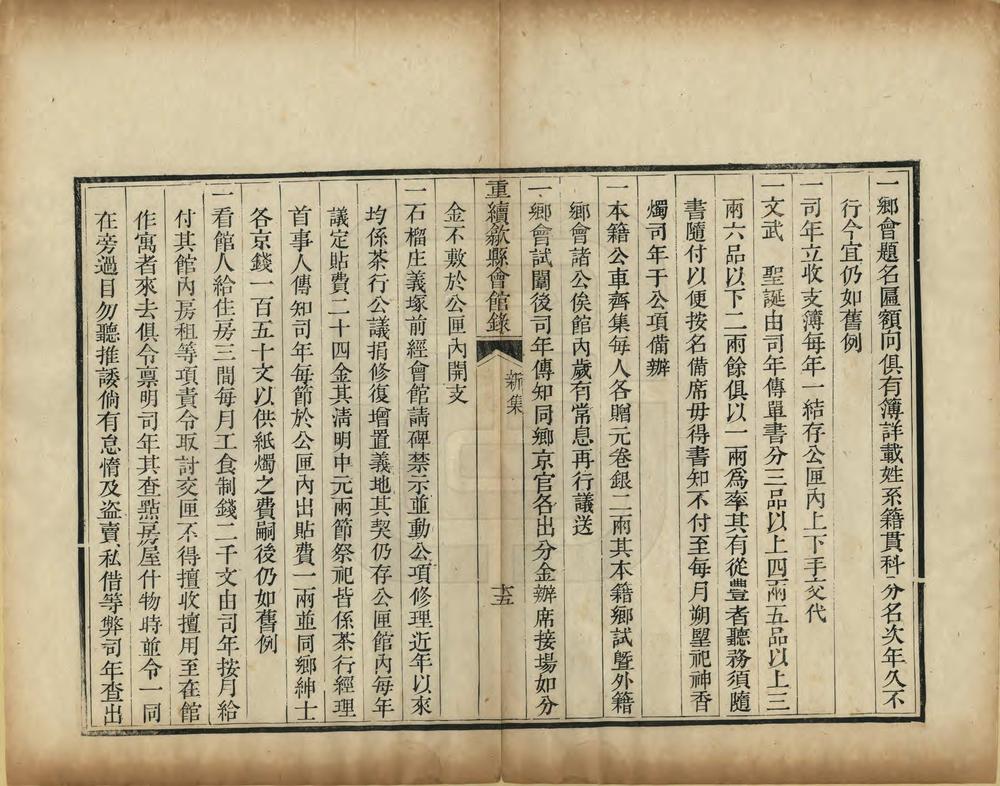 一鄉會題名匾額向俱有簿詳載姓系籍貫科分名次年久不
行今宜仍如舊例
一司年立收支簿每年一結存公匣內上下手交代
一文武　聖誕由司年傳單書分三品以上四兩五品以上三
兩六品以下二兩餘俱以一兩為率其有從豐者聽務須隨
書隨付以便按名備席毋得書知不付至每月朔望祀神香
燭司年于公項備辦
一本籍公車齊集每人各贈元卷銀二兩其本籍鄉試曁外籍
鄉會諸公俟館內歲有常息再行議送
一鄉會試闈後司年傳知同鄉京官各出分金辦席接場如分
重續歙縣會館錄　新集　十五
金不敷於公匣內開支
一石榴庄義塚前經會館請碑禁示並動公項修理近年以來
均係茶行公議捐修復增置義地其契仍存公匣館內每年
議定貼費二十四金其清明中元兩節祭祀皆係茶行經理
首事人傳知司年每節於公匣內出貼費一兩並同鄉紳士
各京錢一百五十文以供紙燭之費嗣後仍如舊例
一看館人給住房三間每月工食制錢二千文由司年按月給
付其館內房租等項責令取討交匣不得擅收擅用至在館
作寓者來去俱令禀明司年其查點房屋什物時並令一同
在旁過目勿聽推諉倘有怠惰及盜賣私借等弊司年查出